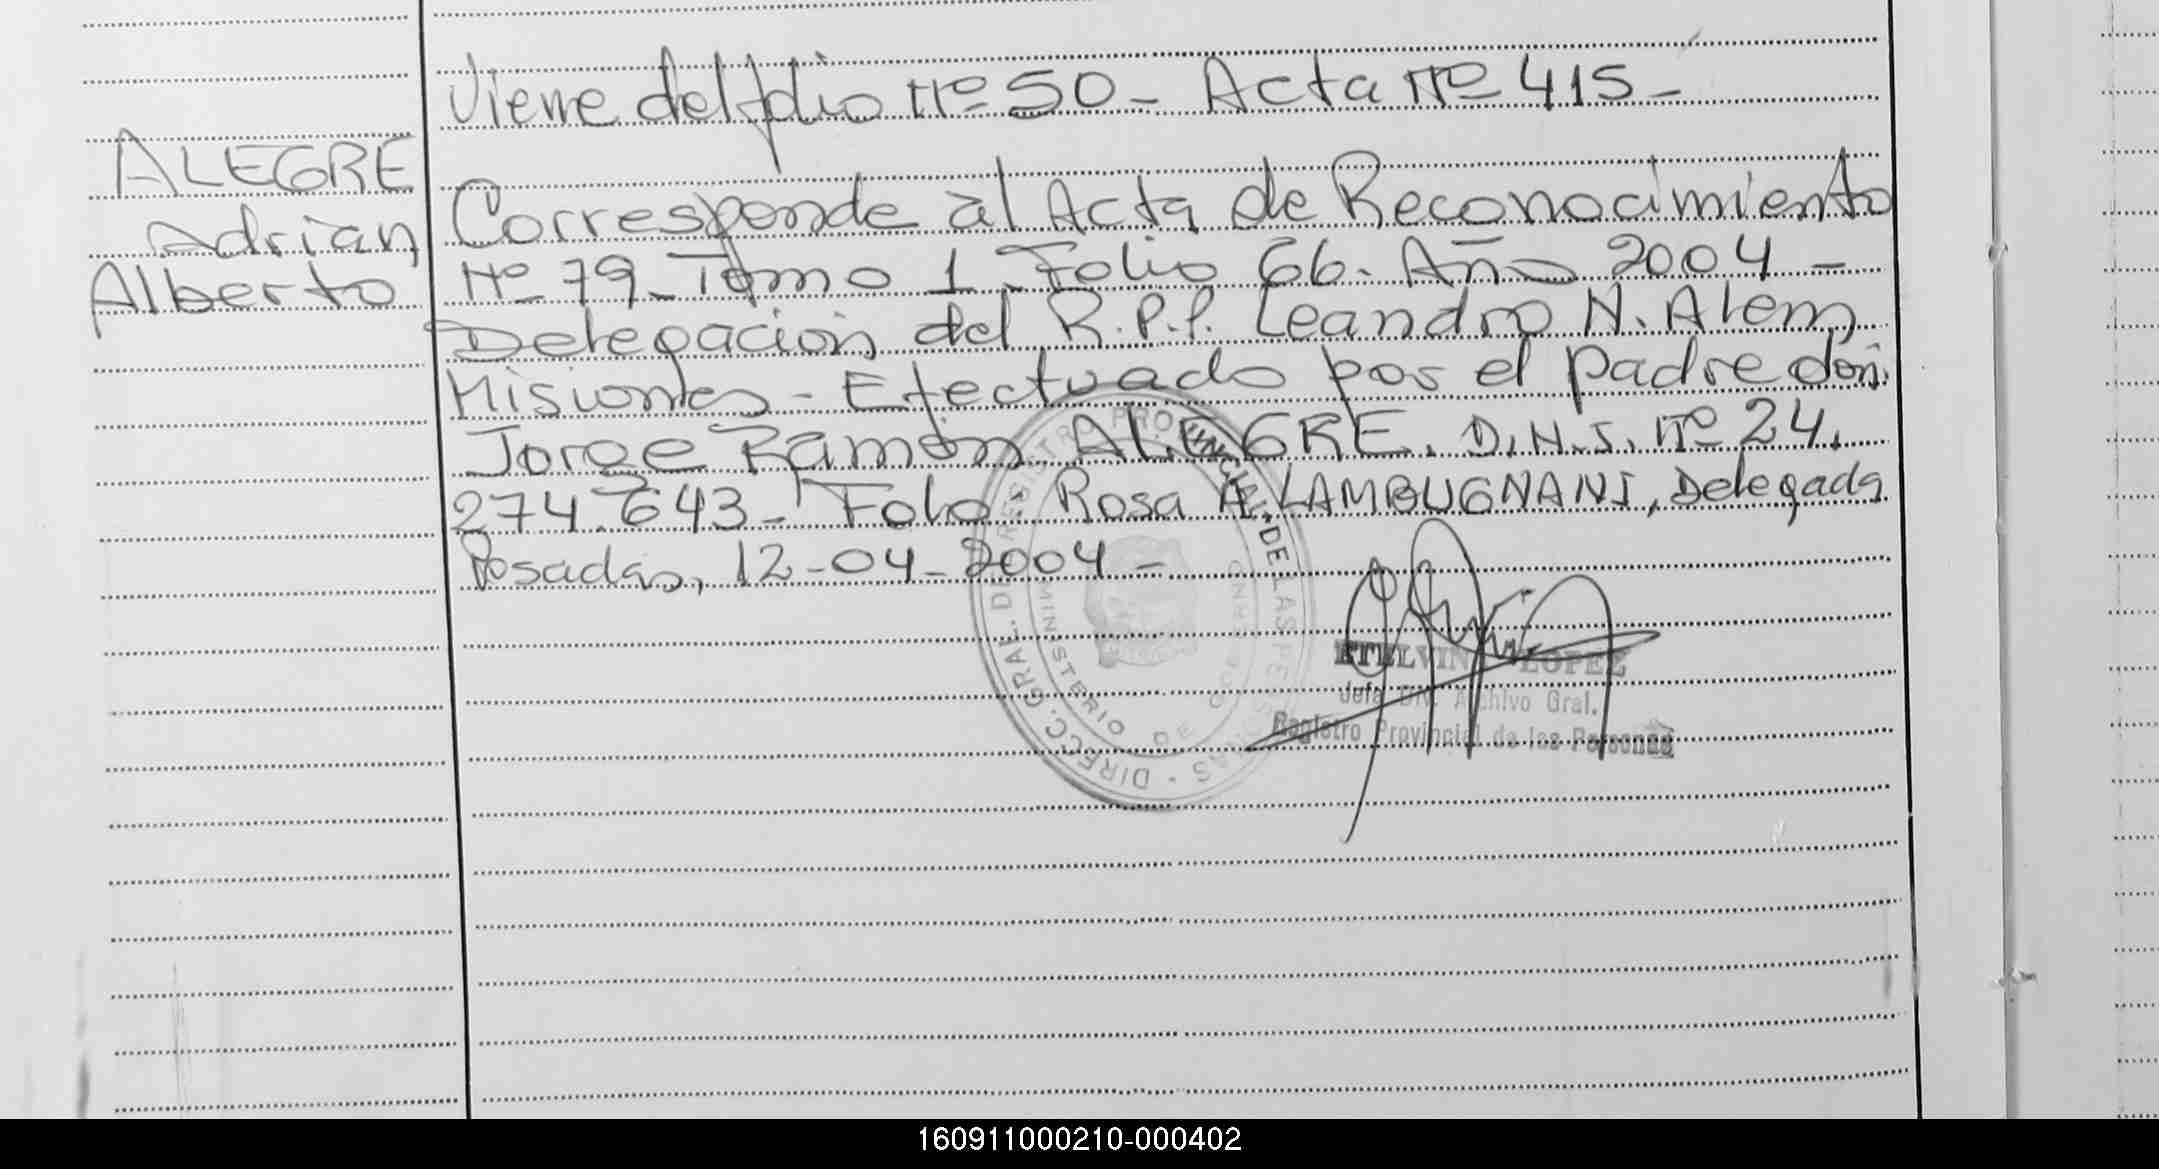 Viene del folio Nº 50 - Acta Nº 415 -
ALEGRE
Adrian
Alberto
Corresponde al Acta de Reconocimiento
Nº 79 - Tomo 1 - Folio 66. Año 2004 -
Delegación del R.P.P. Leandro N. Alem,
Misiones - Efectuado por el padre don:
Jorge Ramón ALEGRE. D.N.I. Nº 24.
274.643 - Fdo: Rosa A. LAMBUGNANI, Delegada
Posadas, 12-04-2004 -
DIRECC. GRAL. DEL REGISTRO PROVINCIAL DE LAS PERSONAS
MINISTERIO DE GOBIERNO
LOPEZ
Jefa Div. Archivo Gral.
Registro Provincial de las Personas
160911000210-000402